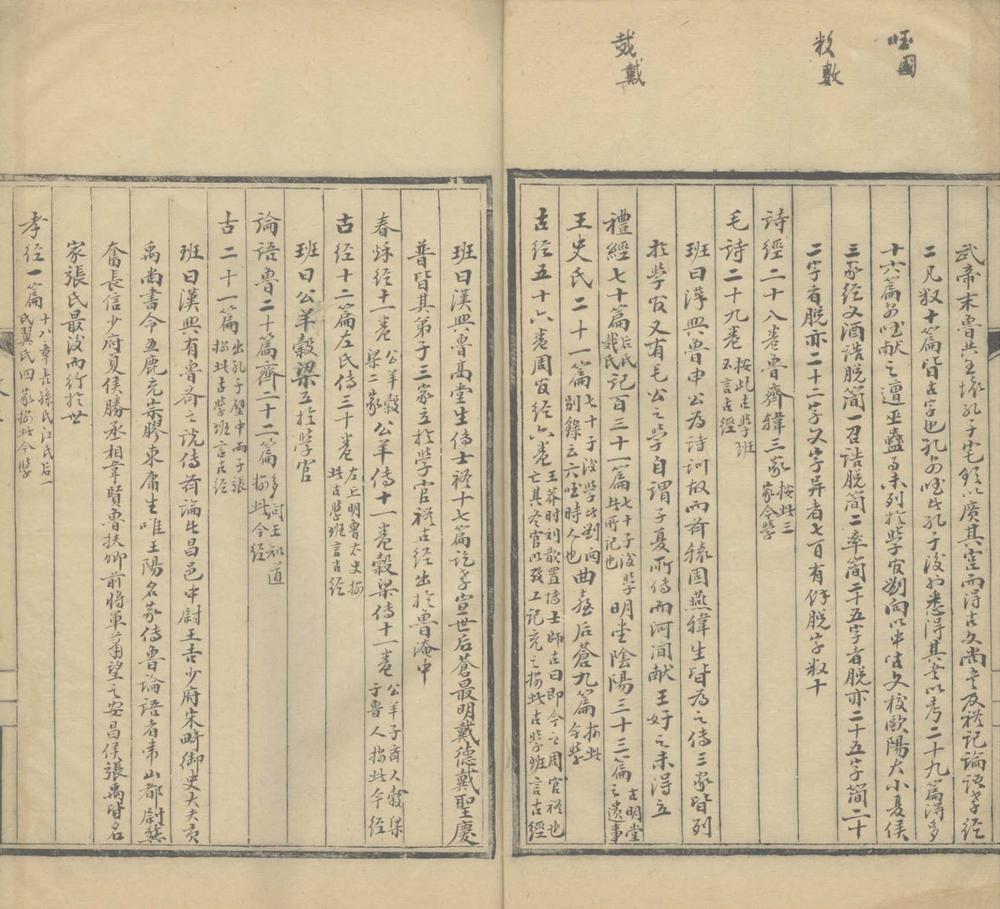 國
數
戴
武帝末魯共王壞孔子宅欲以廣其宮而得古文尚書及禮記論語孝經
二凡数十篇皆古字也孔安国此孔子後也悉得其書以考二十九篇得多
十六篇安国献之遭巫蠱事未列於學官劉向以中古文校歐陽大小夏侯
三家經文酒誥脱簡一召誥脱簡二率簡二十五字者脱亦二十五字簡二十
二字者脱亦二十二字文字异者七百有餘脱字数十
詩經二十八卷魯齊韓三家 按此三家今學
毛詩二十九卷 按此古學班不言古經
班曰漢興魯申公為詩訓故而齊轅固燕韓生皆為之傳三家皆列
於學官又有毛公之學自謂子夏所傳而河間献王好之未得立
禮經七十篇 后氏戴氏 記百三十一篇 七十子後學此所記也 明堂陰陽三十三篇 古明堂之遺事
王史氏二十一篇 七十子後學此劉向別錄云六国時人也 曲臺后蒼九篇 按此今學
古經五十六卷周官經六卷 王莽时刘歆置博士師古曰即今之周官禮也亡其冬官以攷工記充之按此古學班言古經
班曰漢興魯高堂生傳士禮十七篇訖孝宣世后蒼最明戴德戴聖慶
普皆其弟子三家立於學官禮古經出於魯淹中
春秋經十一卷 公羊穀梁二家 公羊傳十一卷穀梁傳十一卷 公羊子齊人穀梁子魯人按此今經
古經十二篇左氏傳三十卷 左上明魯太史按此古學班言古經
班曰公羊穀梁立於學官
論語魯二十篇齊二十二篇 多问王知道按此今經
古二十一篇 出孔子壁中兩子張按此古學班言古經
班曰漢興有魯齊之说傳齊論此昌邑中尉王吉少府宋畸御史大夫貢
禹尚書令五鹿充宗膠東庸生唯王陽名家傳魯論語者常山都尉龔
奮長信少府夏侯勝丞相韋賢魯扶卿前將軍蕭望之安昌侯張禹皆名
家張氏最後而行於世
孝经一篇 十八章長孫氏江氏后氏翼氏四家按此今學